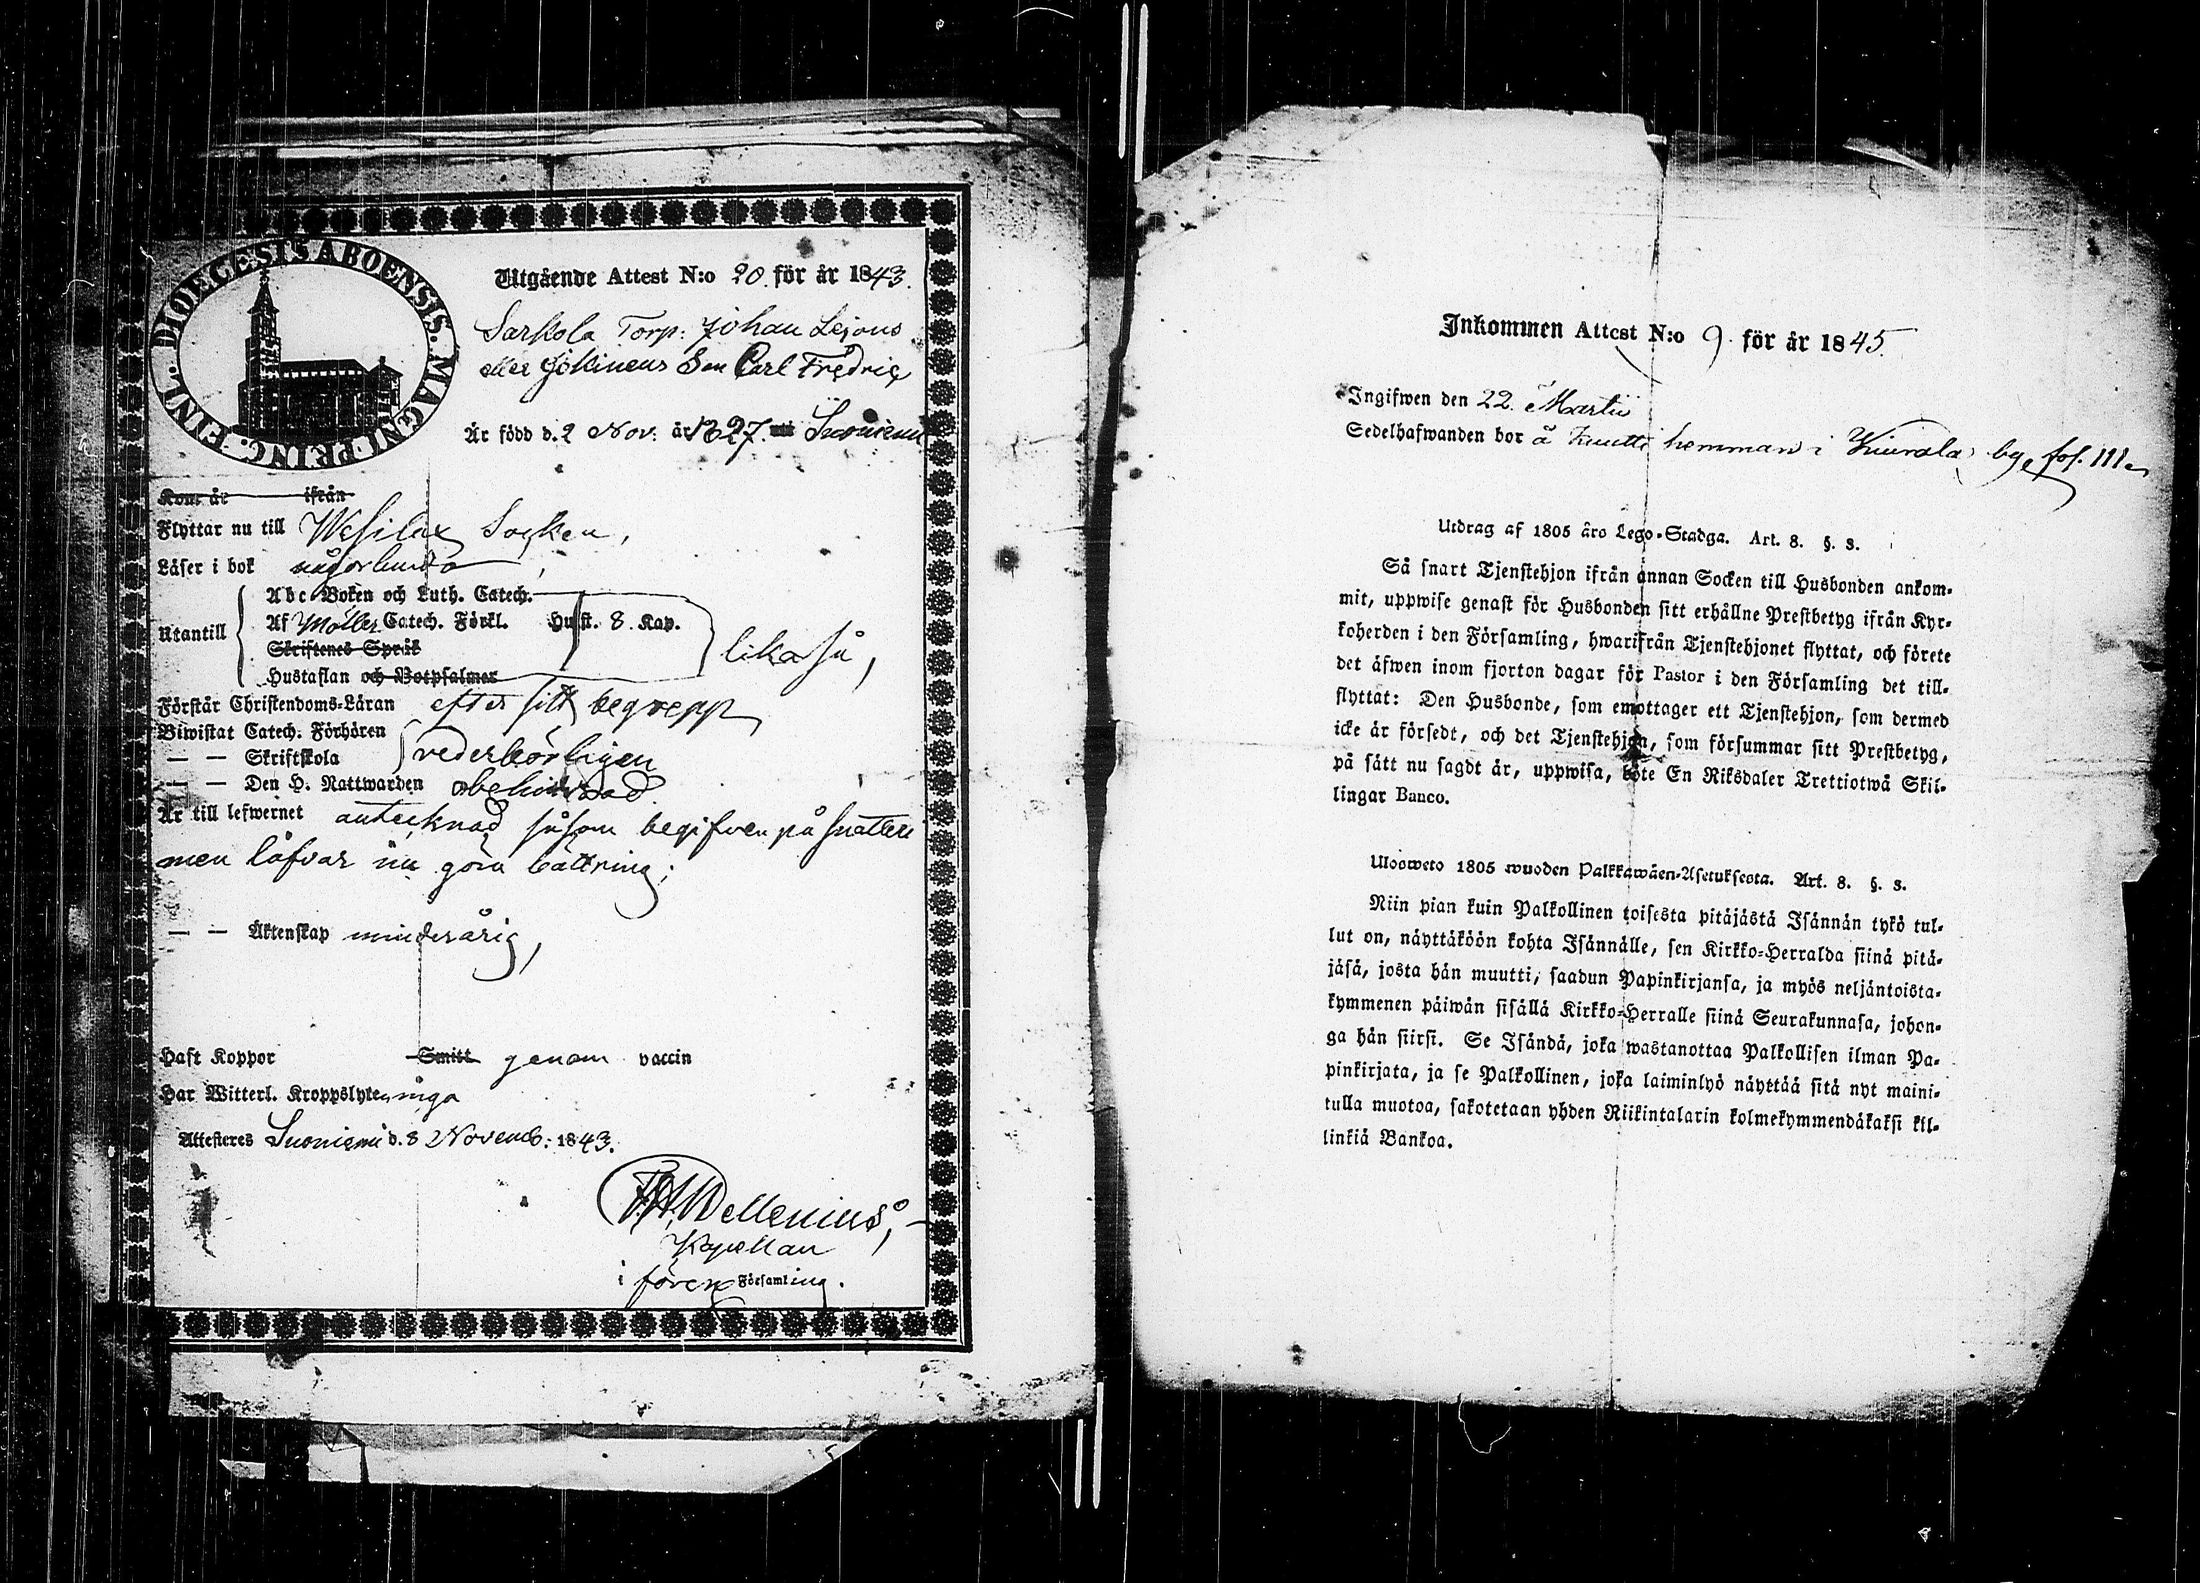 DIOECESIS ABOENSIS. MAGNI PRINC. FINL.
Utgående Attest N:o 20. för år 1843.
Sarkola Torp: Johan Lejons
eller Jokinens Son Carl Fredric
Är född d. 2 Nov: år 1827. Suoniemi
Kom år ifrån
Flyttar nu till Wesilax Socken,
Läser i bok någorlunda
Utantill
Abc Boken och Luth. Catech.
Af Möller Catech. Förkl. Hust. 8. Kap.
Skriftenes Språk
Hustaflan och Botpsalmer
likaså,
Förstår Christendoms-Läran efter sitt begrepp
Biwistat Catech. Förhören
— — Skriftskola vederbörligen
— — Den H. Nattwarden obehindrad
Är till lefwernet antecknad såsom begifven på snatteri
men låfvar nu göra bättring;
— — Äktenskap minderårig,
Haft Koppor Smitt genom vaccin
Har Witterl. Kroppslyte inga
Attesteres Suoniemi d. 8 Novemb: 1843.
Wellenius,
Kapellan
i fören Församling.
Inkommen Attest N:o 9. för år 1845.
Ingifwen den 22. Martii
Sedelhafwanden bor å Knutti hemman i Kiurala by, fol. 111.
Utdrag af 1805 års Lego-Stadga. Art. 8. §. 3.
Så snart Tjenstehjon ifrån annan Socken till Husbonden ankom-
mit, uppwise genast för Husbonden sitt erhållne Prestbetyg ifrån Kyr-
koherden i den Församling, hwarifrån Tjenstehjonet flyttat, och förete
det äfwen inom fjorton dagar för Pastor i den Församling det till-
flyttat: Den Husbonde, som emottager ett Tjenstehjon, som dermed
icke är försedt, och det Tjenstehjon, som försummar sitt Prestbetyg,
på sätt nu sagdt är, uppwisa, böte En Riksdaler Trettiotwå Skil-
lingar Banco.
Ulosweto 1805 wuoden Palkkawäen-Asetuksesta. Art. 8. §. 3.
Niin pian kuin Palkollinen toisesta pitäjästä Isännän tykö tul-
lut on, näyttäköön kohta Isännälle, sen Kirkko-Herralda siinä pitä-
jäsä, josta hän muutti, saadun Papinkirjansa, ja myös neljäntoista-
kymmenen päiwän sisällä Kirkko-Herralle siinä Seurakunnasa, johon-
ga hän siirsi. Se Isändä, joka wastanottaa Palkollisen ilman Pa-
pinkirjata, ja se Palkollinen, joka laiminlyö näyttää sitä nyt maini-
tulla muotoa, sakotetaan yhden Riikintalarin kolmekymmendäkaksi kil-
linkiä Bankoa.